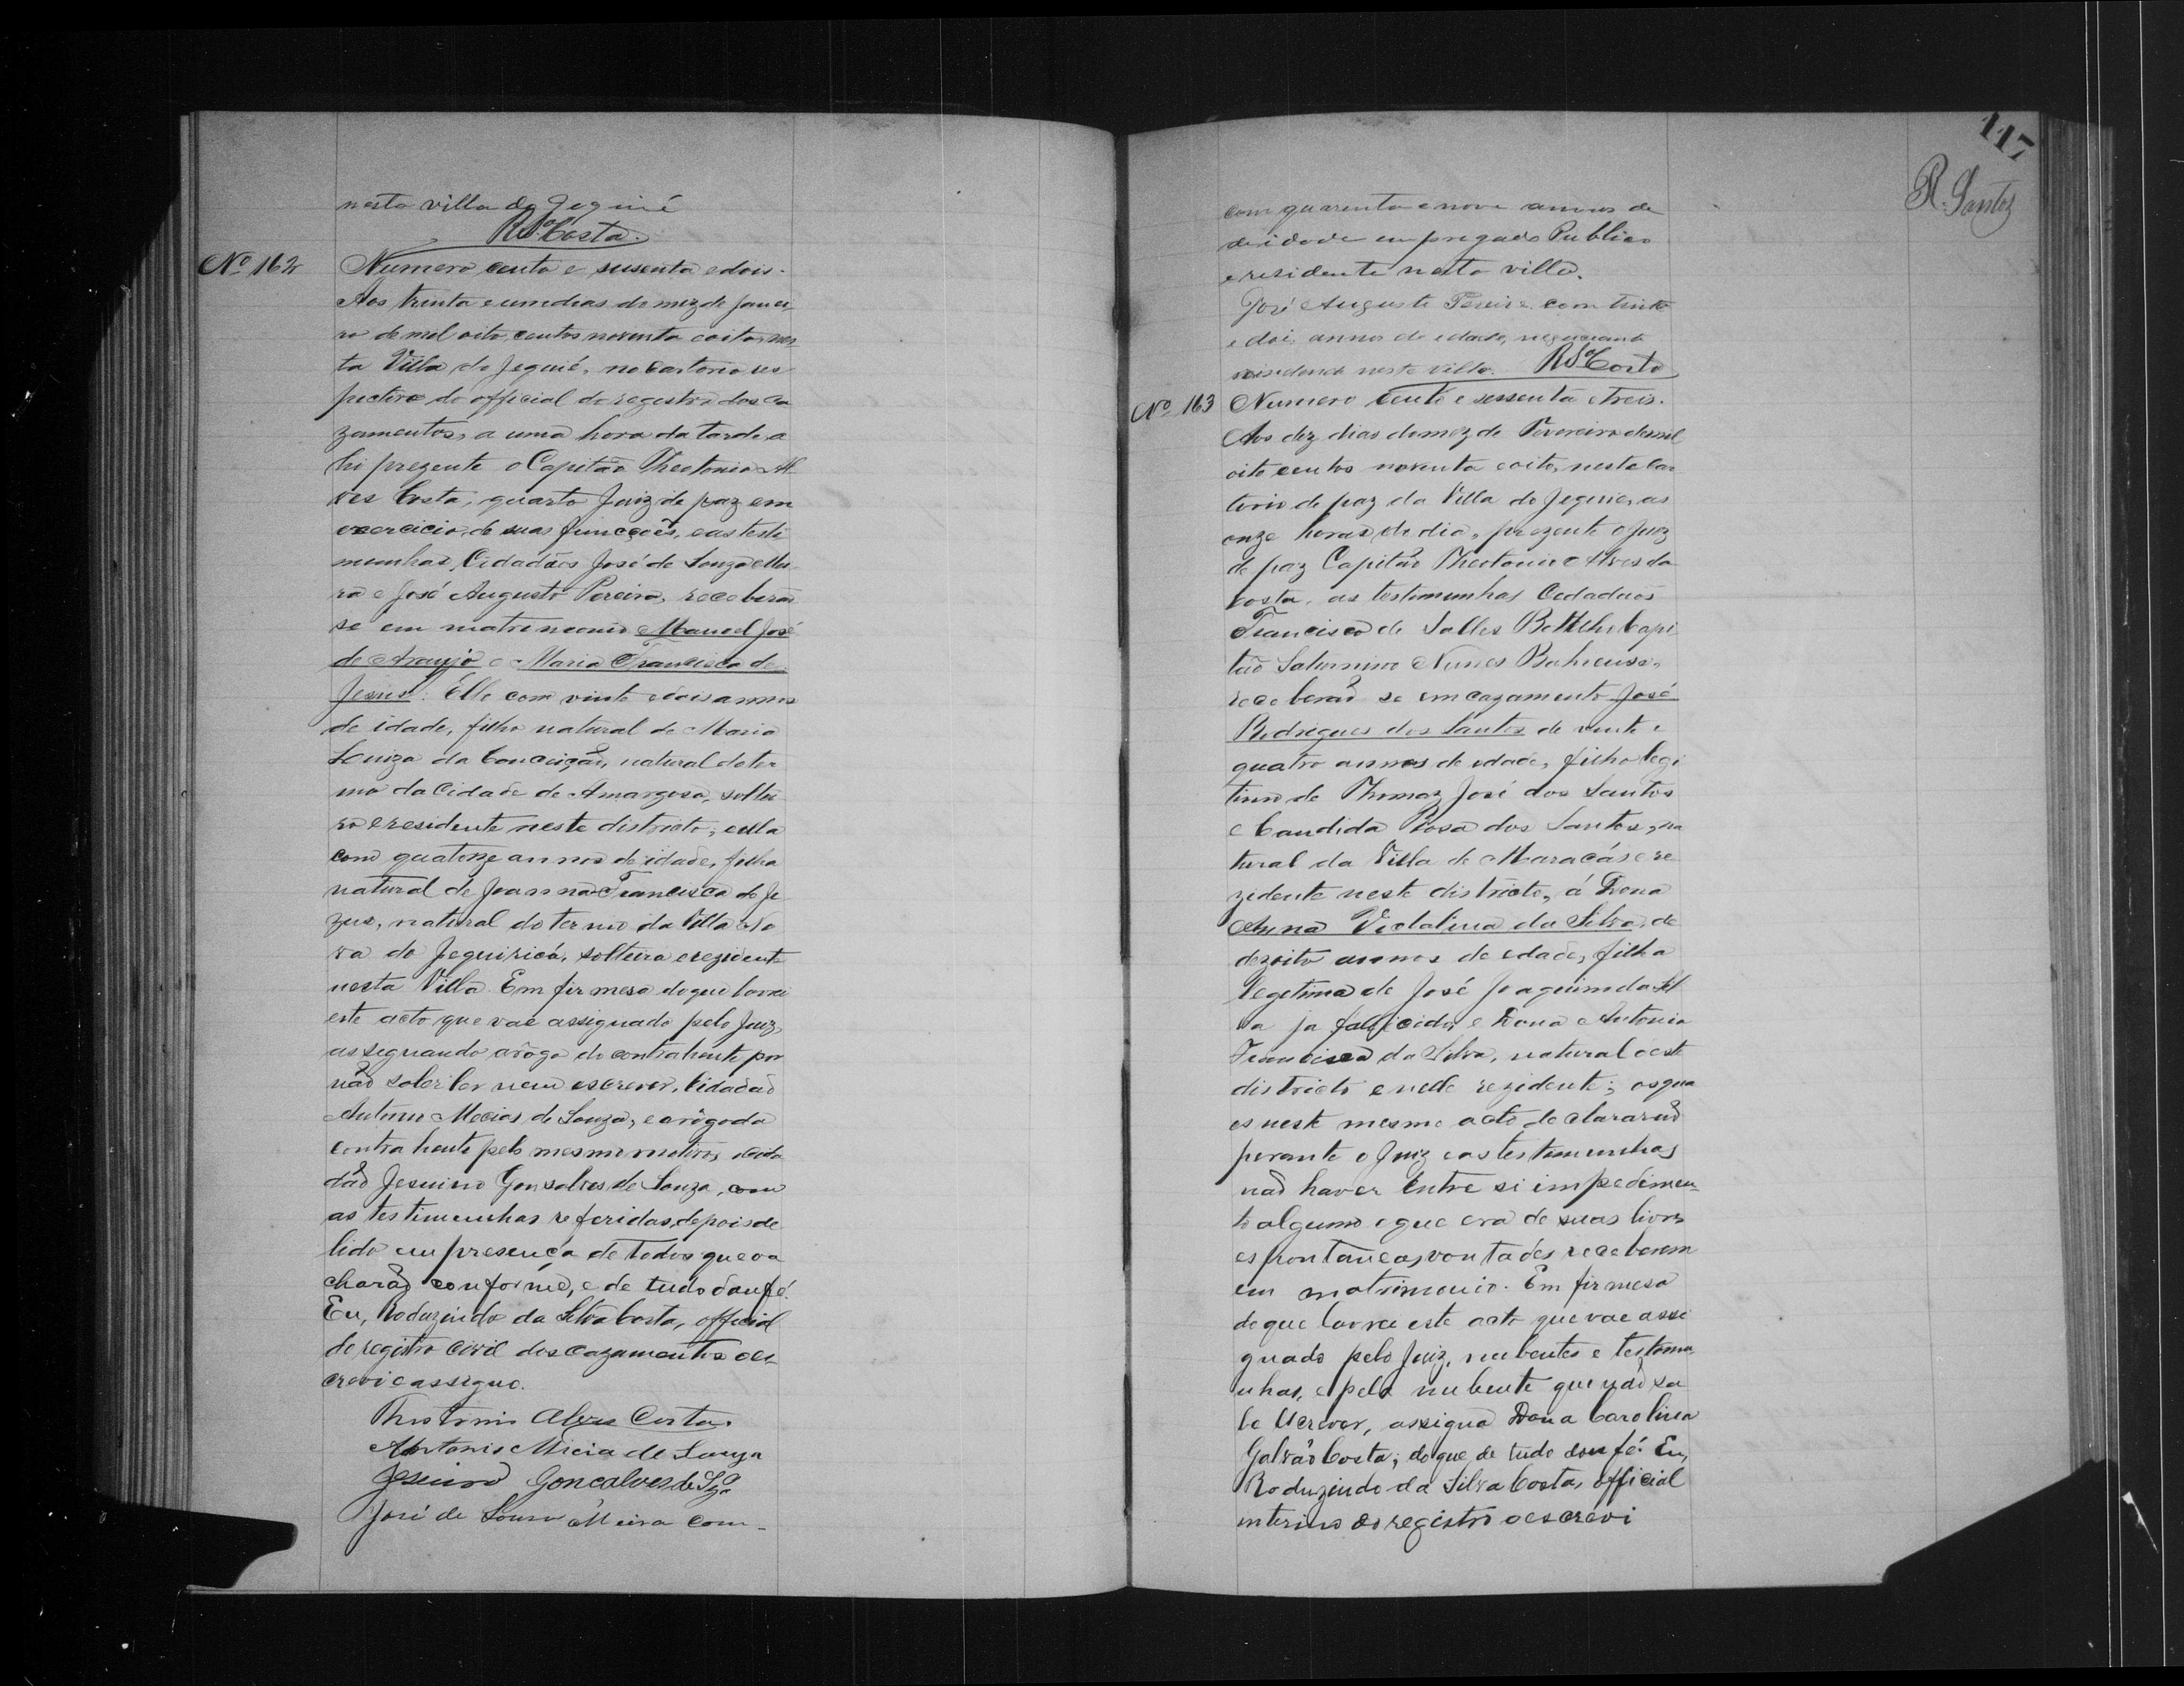 nesta villa de Jequié
RSª Costa.
Nº 162
Numero cento e sesenta e dois.
Aos trinta e um dias do mez de Janei-
ro de mil oito centos noventa e oito, nes-
ta Villa de Jequié, no Cartorio res
pectivo do official do registro dos ca
zamentos, a uma hora da tarde, a
hi prezente o Capitão Theotonio Al
ves Costa, quarto Juiz de paz em
exercicio de suas funcções, e as teste
munhas, Cidadãos José de Souza Mei
ra e José Augusto Pereira, receberão
se em matrimonio Manoel José
de Araujo e Maria Francisca de
Jesus: Elle com vinte e dois annos
de idade, filho natural de Maria
Luiza da Conceição, natural do ter
mo da Cidade de Amargosa, soltei
ro e residente neste districto; e ella
com quatorze annos de idade, filha
natural de Joanna Francisca de Je
zus, natural do termo da Villa No
va de Jequiriçá, solteira e rezidente
nesta Villa. Em firmesa do que lavrei
este acto que vae assignado pelo Juiz,
assignando a rôgo do contrahente por
não saber ler nem escrever, Cidadão
Antonio Mecias de Souza, e a rôgo da
contrahente pelo mesmo motivo, cida
dão Jesuino Gonsalves de Souza, com
as testimunhas referidas, depois de
lido em presença de todos que o a
charão conforme, e de tudo dou fé.
Eu, Roduzindo da Silva Costa, official
do registro Civil dos cazamentos o es-
crevi e assigno.
Theotonio Alves Costa.
Antonio Micia de Souza
Jesuino Goncalves de Sza
José de Souza Meira com-
117
R. Santos
com quarenta e nove annos de
de idade empregado Publico
e residente nesta villa.
José Augusto Pereira com trinta
e dois annos de edade, negociante
residente nesta villa. RSª Costa
Nº 163
Numero Cento e sessenta e treis.
Aos dez dias do mez de Fevereiro de mil
oito centos noventa e oito, neste Car
torio de paz da Villa de Jequié, as
onze horas do dia, prezente o Juiz
de paz Capitão Theotonio Alves da
Costa, as testimunhas Cidadãos
Francisco de Salles Bottelho Capi
tão Saturnino Nunes Bahiense,
receberão se em cazamento José
Rodrigues dos Santos de vinte e
quatro annos de edade, filho legi
timo de Thomaz José dos Santos
e Candida Rosa dos Santos, na
tural da Villa de Maracás e re
zidente neste districto, á Dona
Anna Victalina da Silva, de
dezoito annos de edade, filha
legitima de José Joaquim da Sil
va ja fallicido, e Dona Antonia
Francisca da Silva, natural deste
districto e nelle rezidente; os qua
es neste mesmo acto declararão
perante o Juiz e as testimunhas
não haver entre si impedimen-
to algumo e que era de suas livres
espontaneas vontades receberem
em matrimonio. Em firmesa
do que lavrei este acto que vae assi
gnado pelo Juiz, nubentes e testemu
nhas, e pela nubente que não sa
be escrever, assigna Dona Carolina
Galvão Costa; do que de tudo dou fé. Eu,
Roduzindo da Silva Costa, official
interino do registro o escrevi